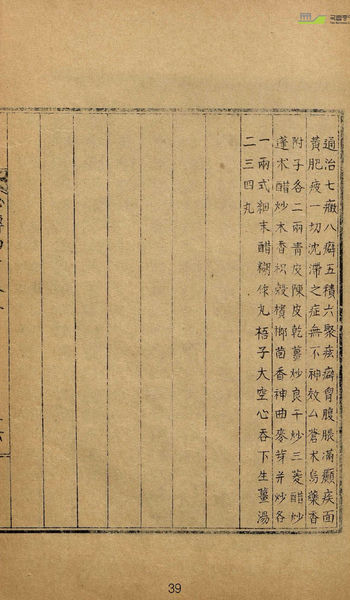 通治七癥八癖五積六聚痃癖胷腹脹滿顚疾面
黃肥疲一切沈滯之症無不神效厶蒼朮烏藥香
附子各二兩靑皮陳皮乾薑炒良干炒三菱醋炒
蓬朮醋炒木香枳殼檳榔茴香神曲麥芽并炒各
一兩式細末醋糊作丸梧子大空心吞下生薑湯
二三四丸
39